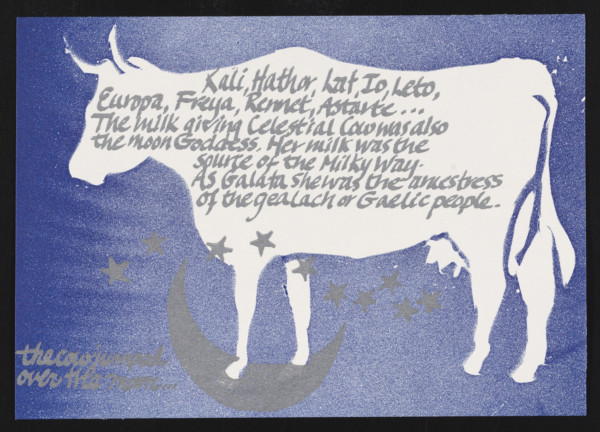 Kali, Hathor, Lat, Io, Leto,
Europa, Freya, Rennet, Astarte...
The milk giving Celestial Cow was also
the moon Goddess. Her milk was the
source of the Milky Way.
As Galata she was the ancestress
of the gealach or Gaelic people.
the cow jumped
over the moon...